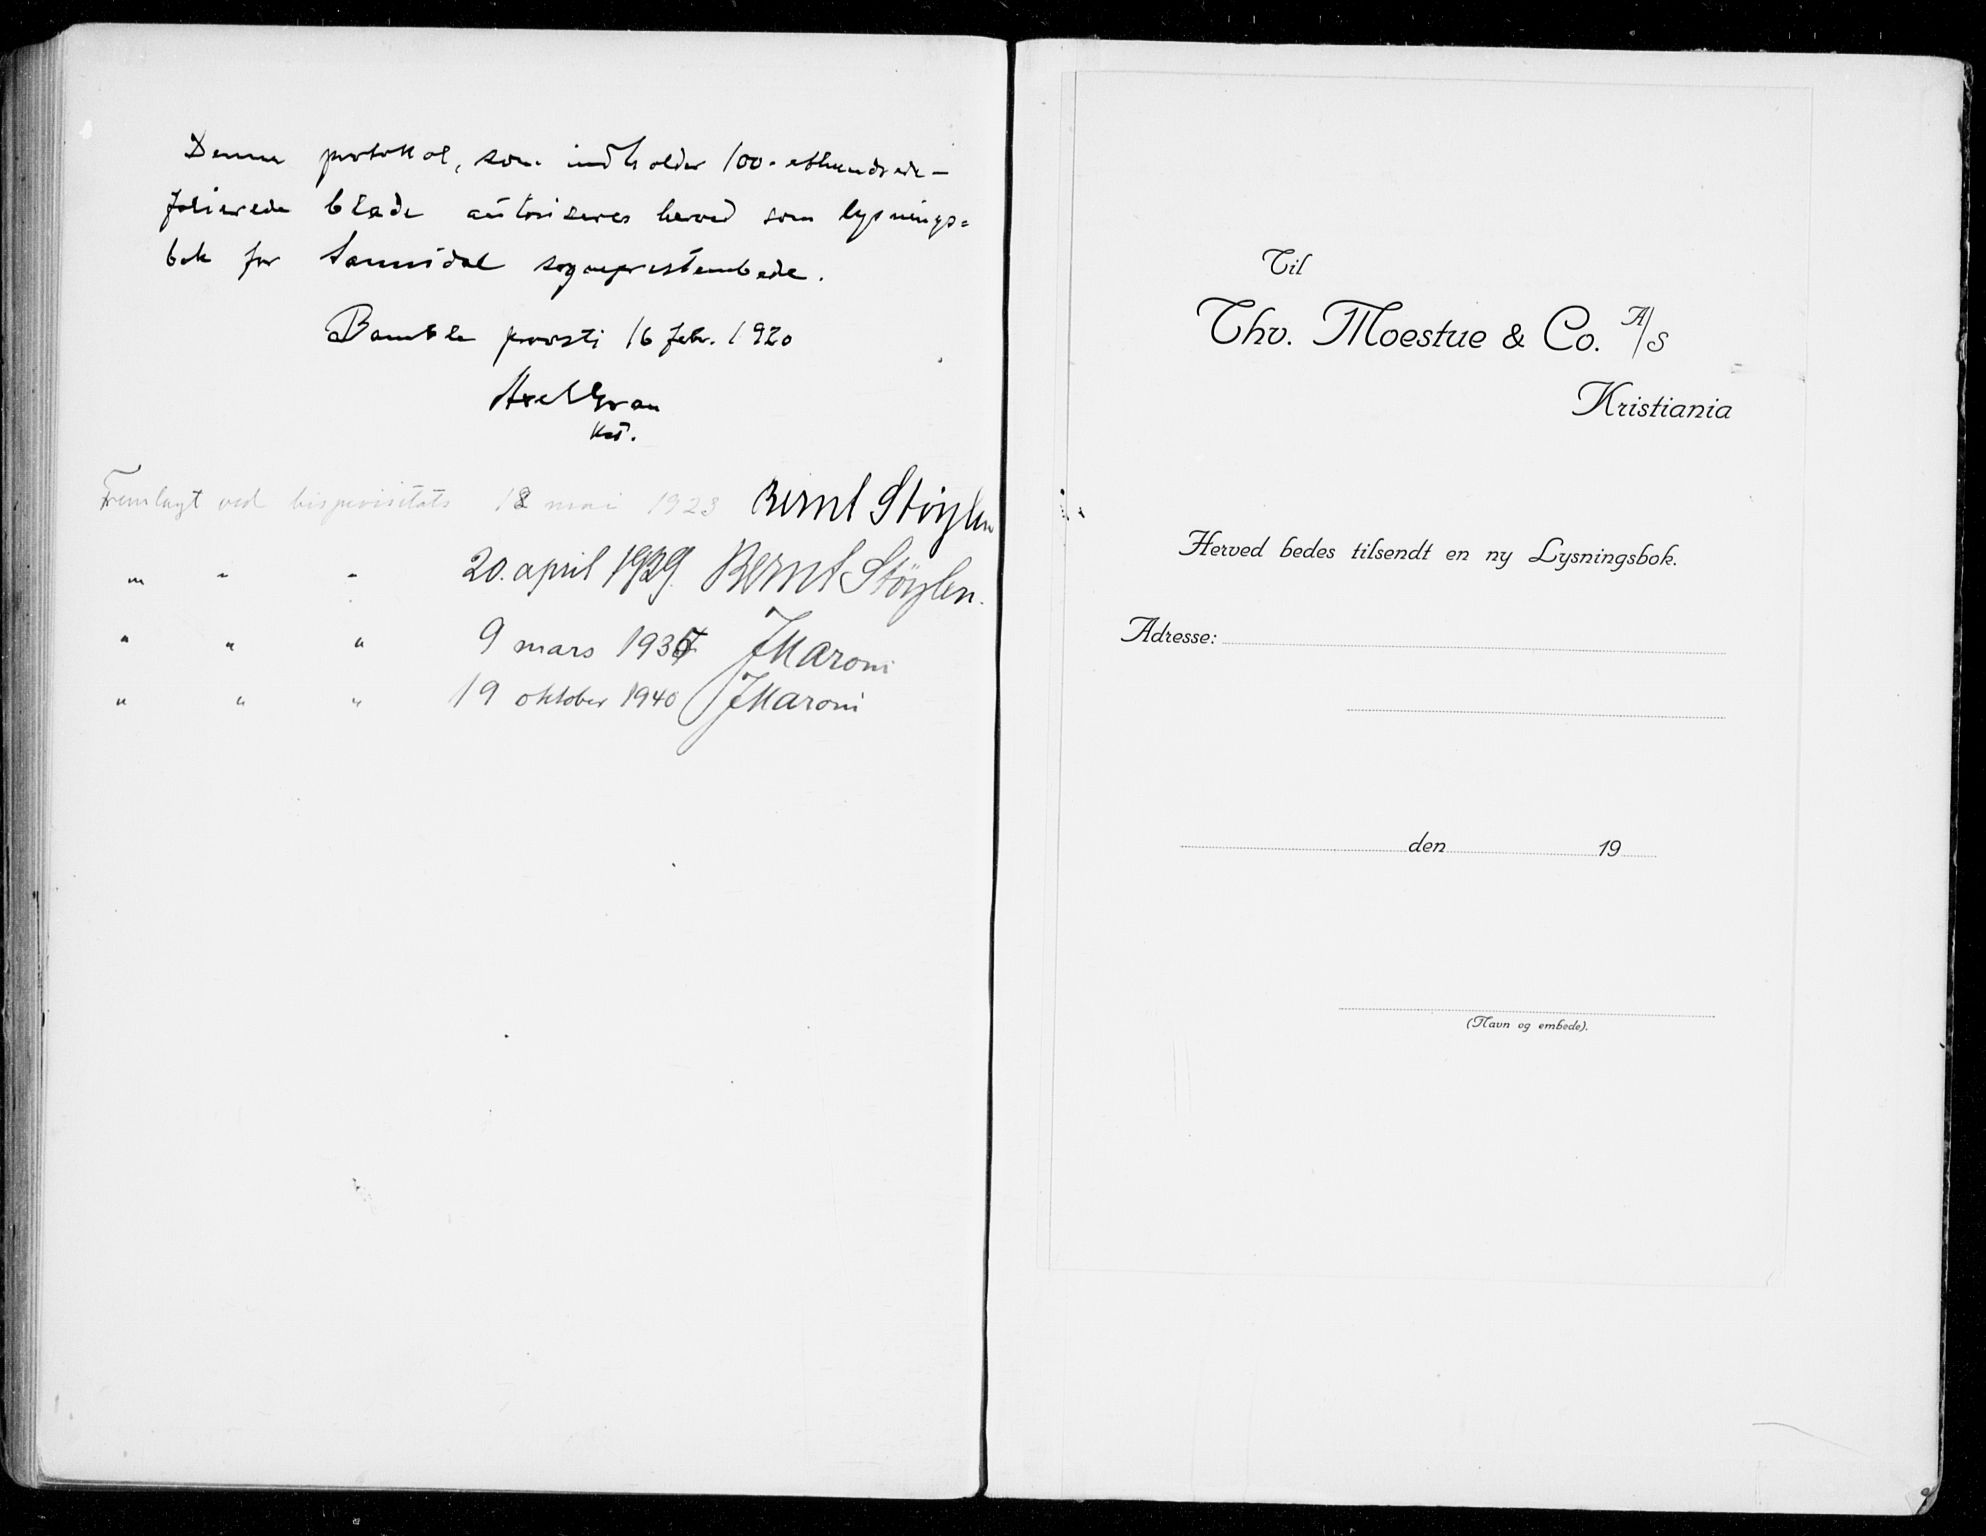 Denne protokol, som indholder 100- ethundrede-
folierede blade autoriseres herved som lysnings=
bok for Sannidal sogneprestembede.
Bamble provsti 16 febr. 1920
Axel Gran
kst.
Fremlagt ved bispevisitats 18 mai 1923 Bernt Støylen
" " " 20. april 1929. Bernt Støylen.
" " " 9 mars 1937 J Maroni
" " " 19 oktober 1940 J Maroni
Til
Thv. Moestue & Co. A/S
Kristiania
Herved bedes tilsendt en ny Lysningsbok.
Adresse:
den 19
(Navn og embede).